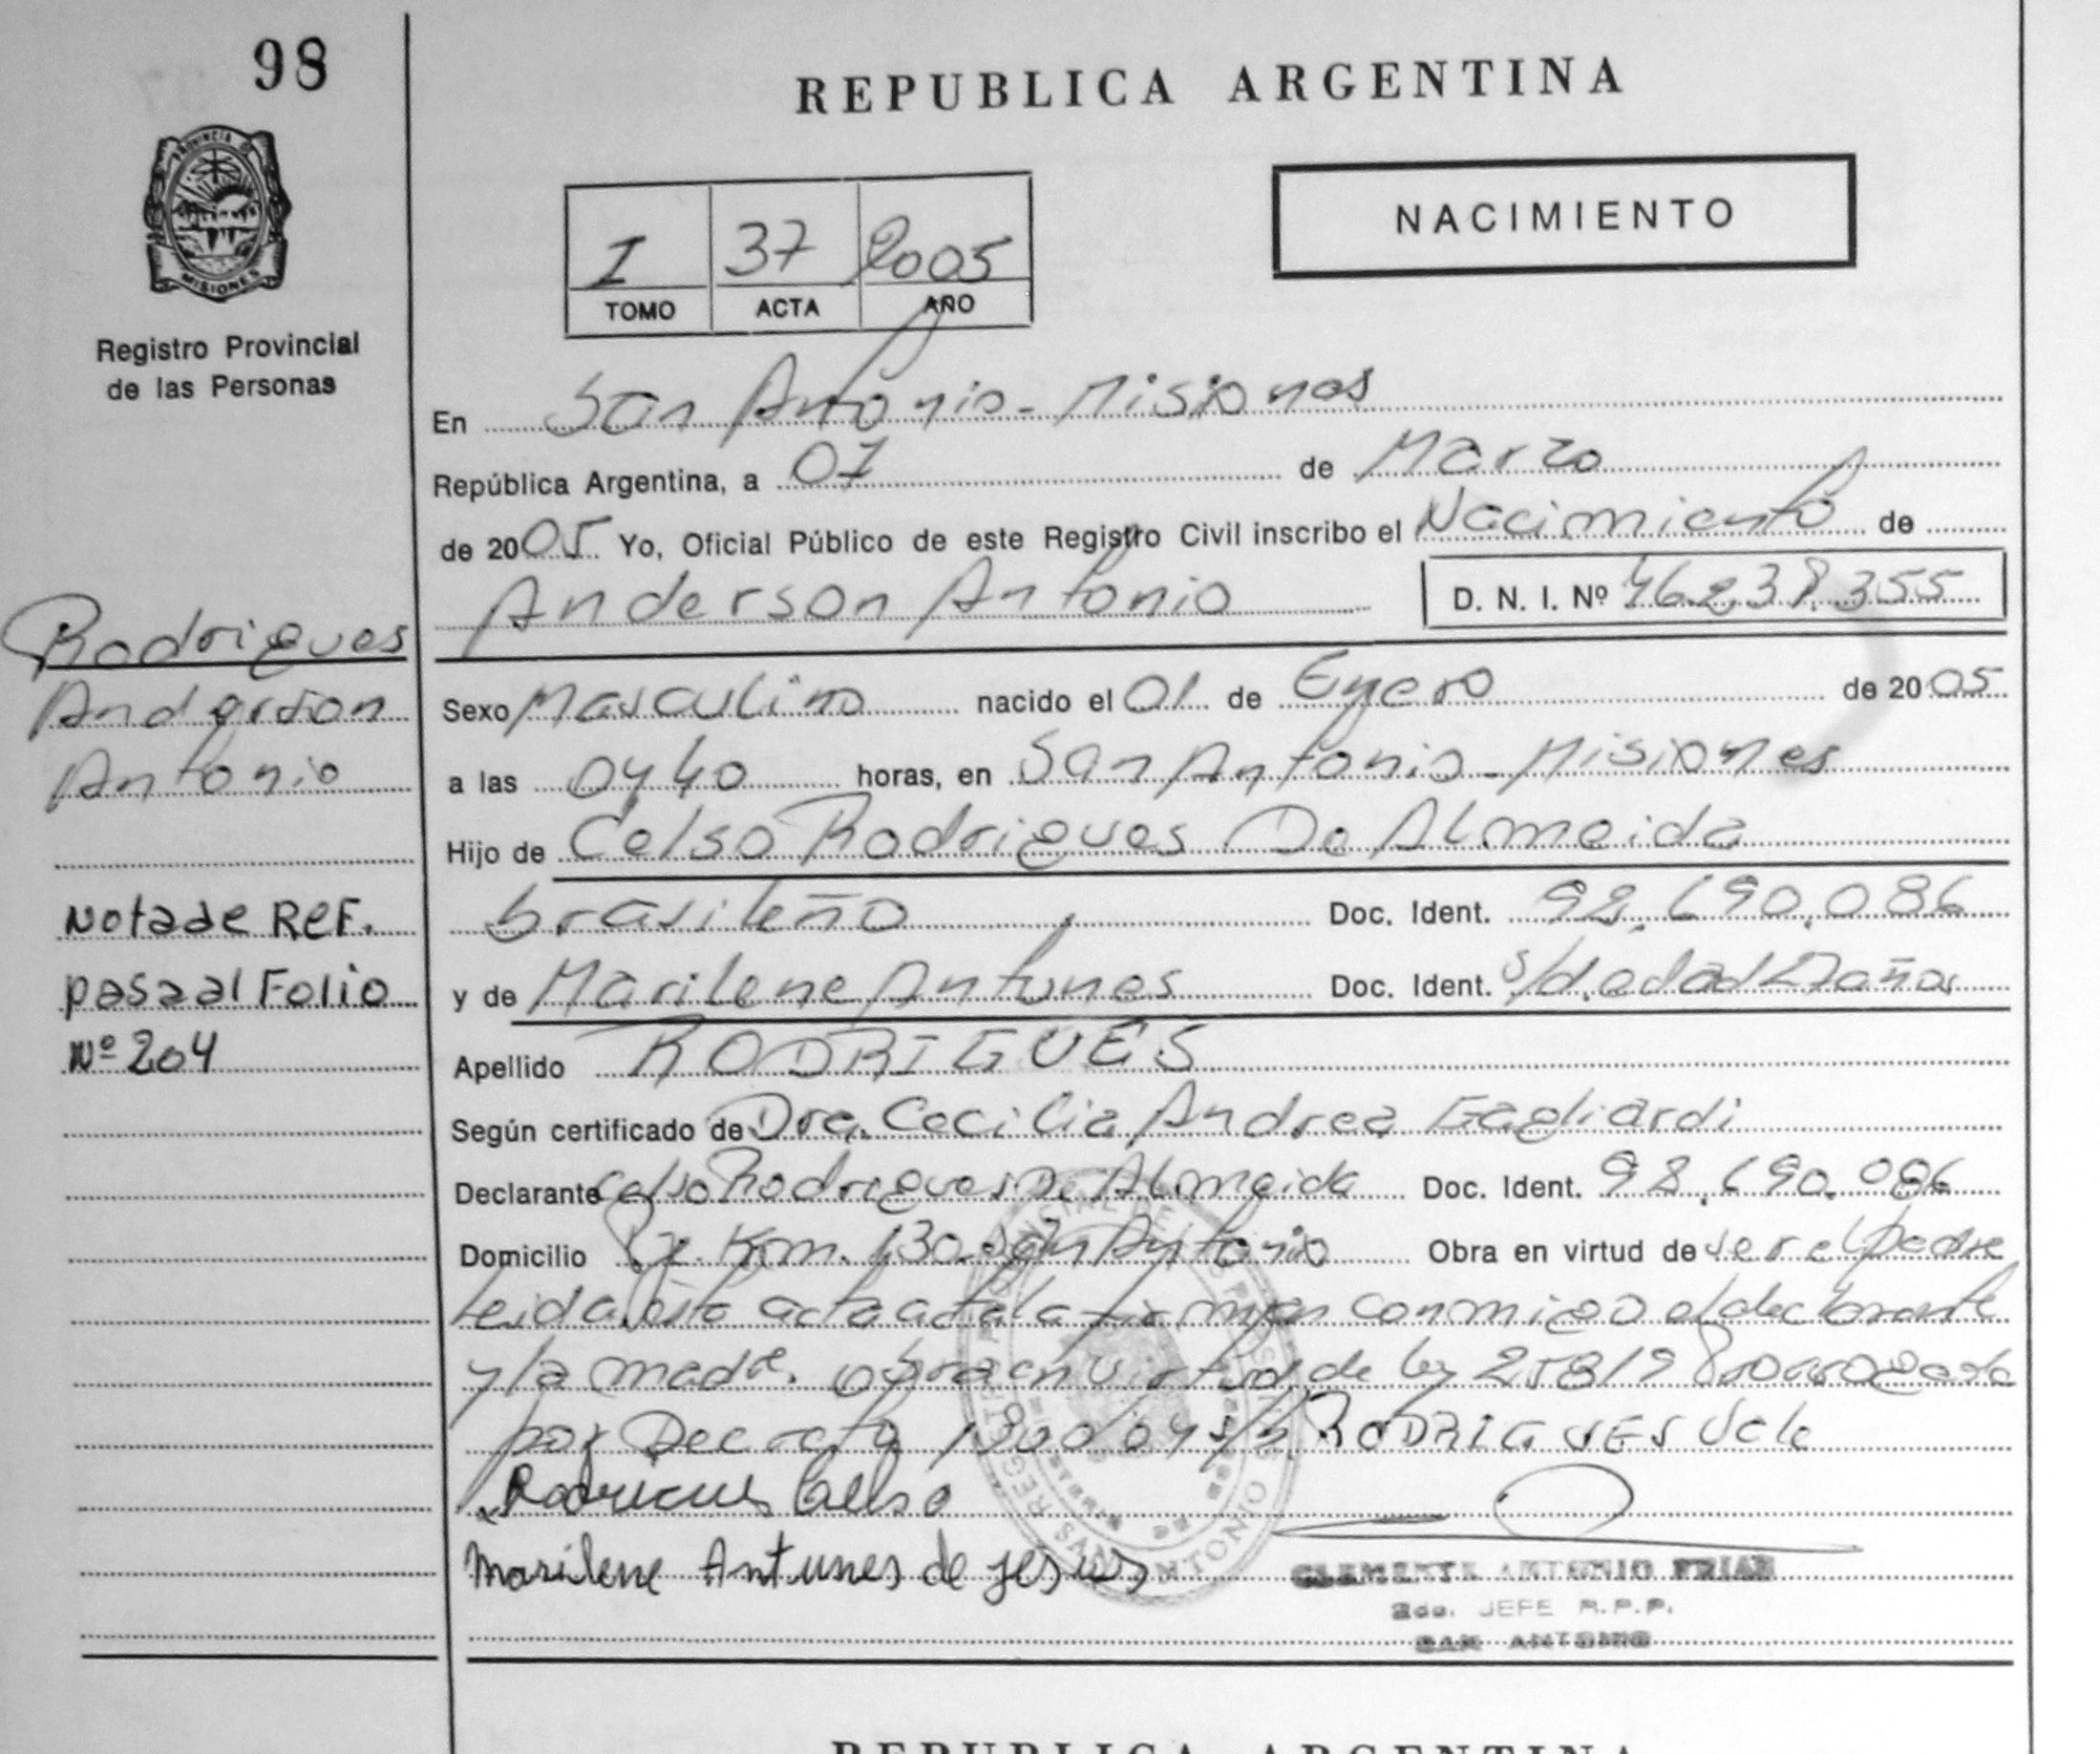 98
REPUBLICA ARGENTINA
PROVINCIA DE
MISIONES
Registro Provincial
de las Personas
I 37 2005
TOMO ACTA AÑO
NACIMIENTO
En San Antonio - Misiones
República Argentina, a 07 de Marzo
de 2005 Yo, Oficial Público de este Registro Civil inscribo el Nacimiento de
Anderson Antonio D. N. I. Nº 46.238.355
Rodrigues
Anderson
Antonio
Sexo Masculino nacido el 01 de Enero de 2005
a las 0440 horas, en San Antonio - Misiones
Hijo de Celso Rodrigues De Almeida
brasileño Doc. Ident. 92.690.086
y de Marilene Antunes Doc. Ident. s/d. edad años
Nota de Ref.
pasa al Folio
Nº 204
Apellido RODRIGUES
Según certificado de Dra. Cecilia Andrea Gagliardi
Declarante Celso Rodrigues De Almeida Doc. Ident. 92.690.086
Domicilio Km. 130. San Antonio Obra en virtud de ser el padre
leida esta acta firman conmigo el declarante
y la madre. obra en virtud de ley 25819
por Decreto s/r RODRIGUES Vale
Rodrigues Celso
Marilene Antunes de Jesus
CLEMENTE ANTONIO FRIAS
2do. JEFE R.P.P.
SAN ANTONIO
REPUBLICA ARGENTINA